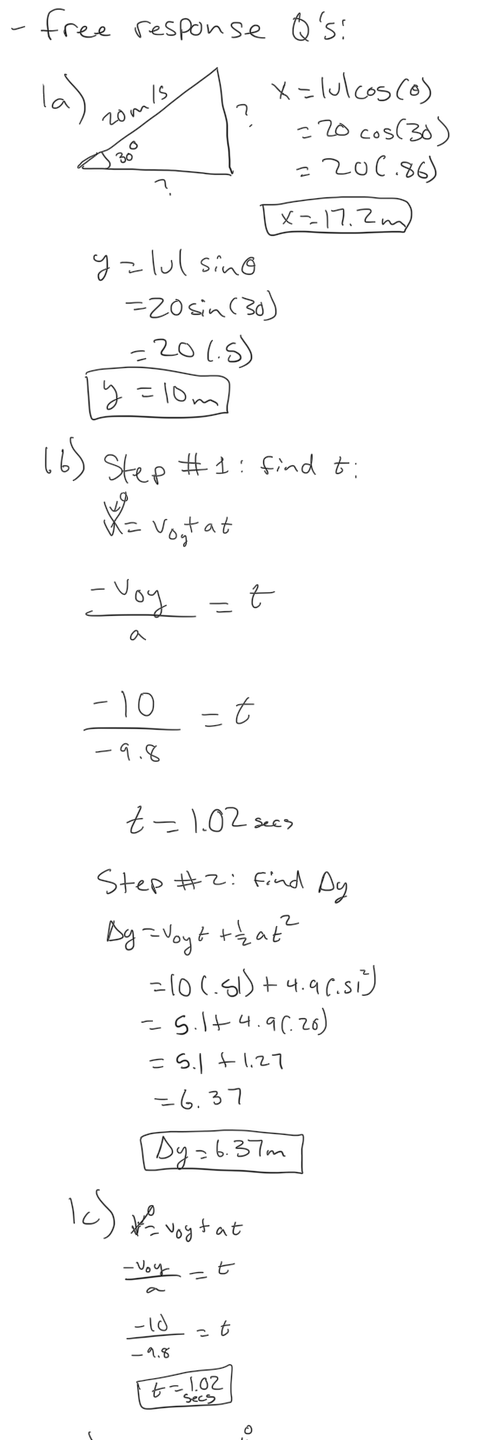 - free response Q's:
1a) 20m/s 30° ? ?
x = |v|cos(θ)
= 20 cos(30)
= 20(.86)
x = 17.2m
y = |v| sinθ
= 20 sin(30)
= 20(.5)
y = 10m
1b) Step #1: find t:
v⁰ = v₀y + at
-v₀y / a = t
-10 / -9.8 = t
t = 1.02 secs
Step #2: find Δy
Δy = v₀yt + ½at²
= 10(.51) + 4.9(.51²)
= 5.1 + 4.9(.26)
= 5.1 + 1.27
= 6.37
Δy = 6.37m
1c) v⁰ = v₀y + at
-v₀y / a = t
-10 / -9.8 = t
t = 1.02
secs